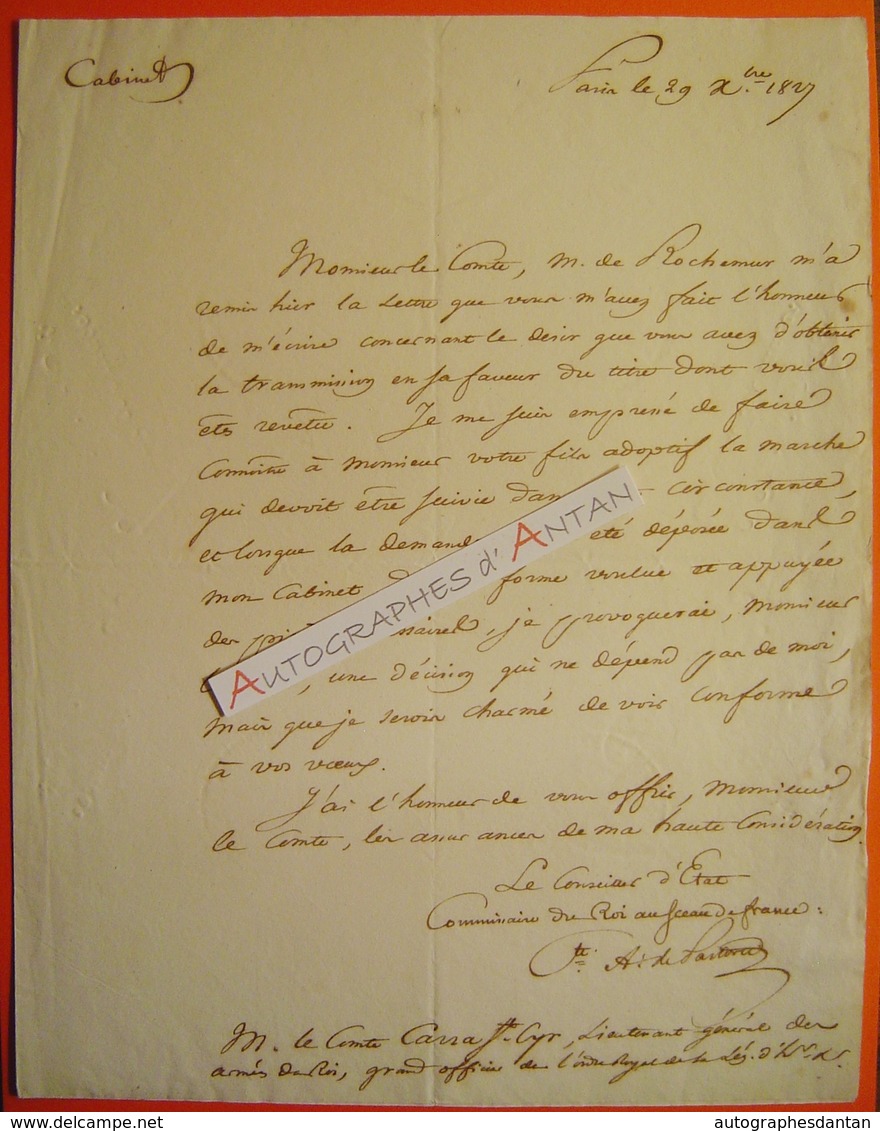 Cabinet
Paris le 29 Xbre 1827
Monsieur le Comte, M. de Rochemur m'a
remis hier la Lettre que vous m'avez fait l'honneur
de m'écrire concernant le désir que vous avez d'obtenir
la transmission en sa faveur du titre dont vous
êtes revêtu. Je me suis empressé de faire
connoître à Monsieur votre fils adoptif la marche
qui devoit être suivie dans circonstance,
et lorsque la demande été déposée dans
mon Cabinet forme voulue et appuyée
des , je provoquerai, Monsieur
, une décision qui ne dépend pas de moi,
mais que je serois charmé de voir conforme
à vos vœux.
J'ai l'honneur de vous offrir, Monsieur
le Comte, les assurances de ma haute Considération
Le Conseiller d'Etat
Commissaire du Roi au Sceau de france :
Cte A. de Pastoret
M. le Comte Carra St. Cyr, Lieutenant général des
armés du Roi, grand officier de l'ordre Royal de la Lég. d'hr. &c.
AUTOGRAPHES d'ANTAN
delcampe.net
autographesdantan